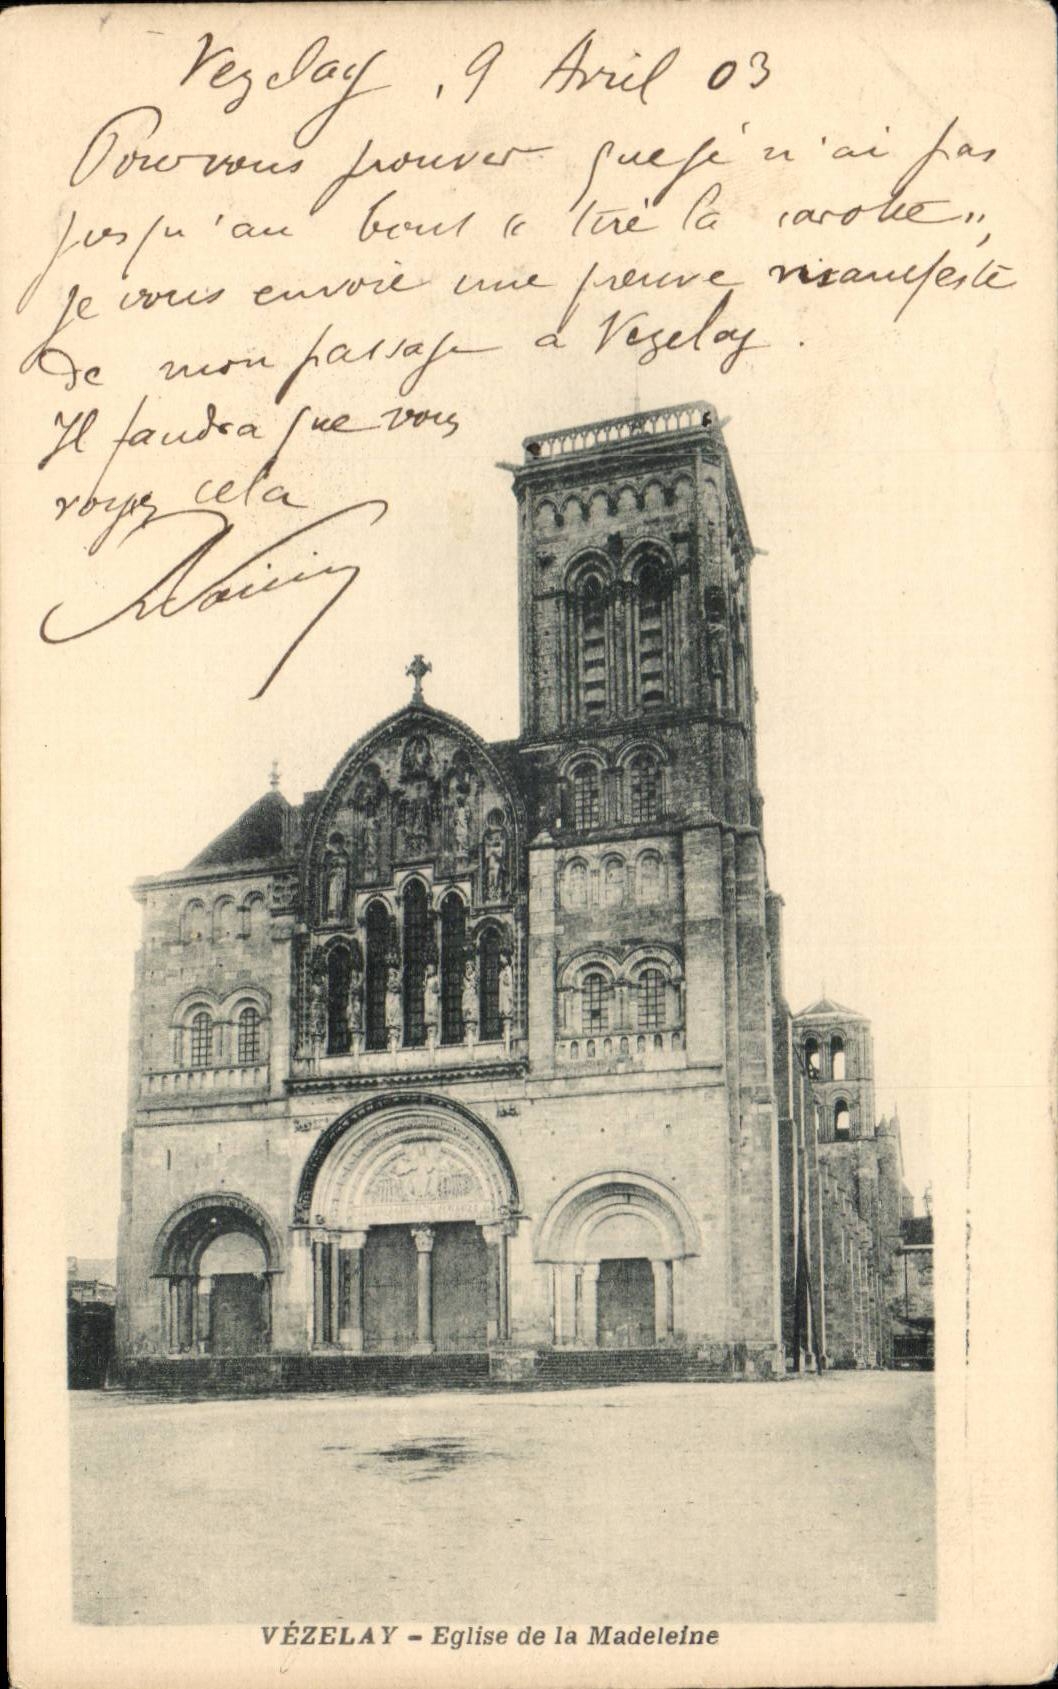 Vezelay, 9 Avril 03
Pour vous prouver que je n'ai pas
jusqu'au bout « tiré la carotte »,
je vous envoie une preuve manifeste
de mon passage a Vezelay.
Il faudra que vous
voyez cela
VÉZELAY - Eglise de la Madeleine